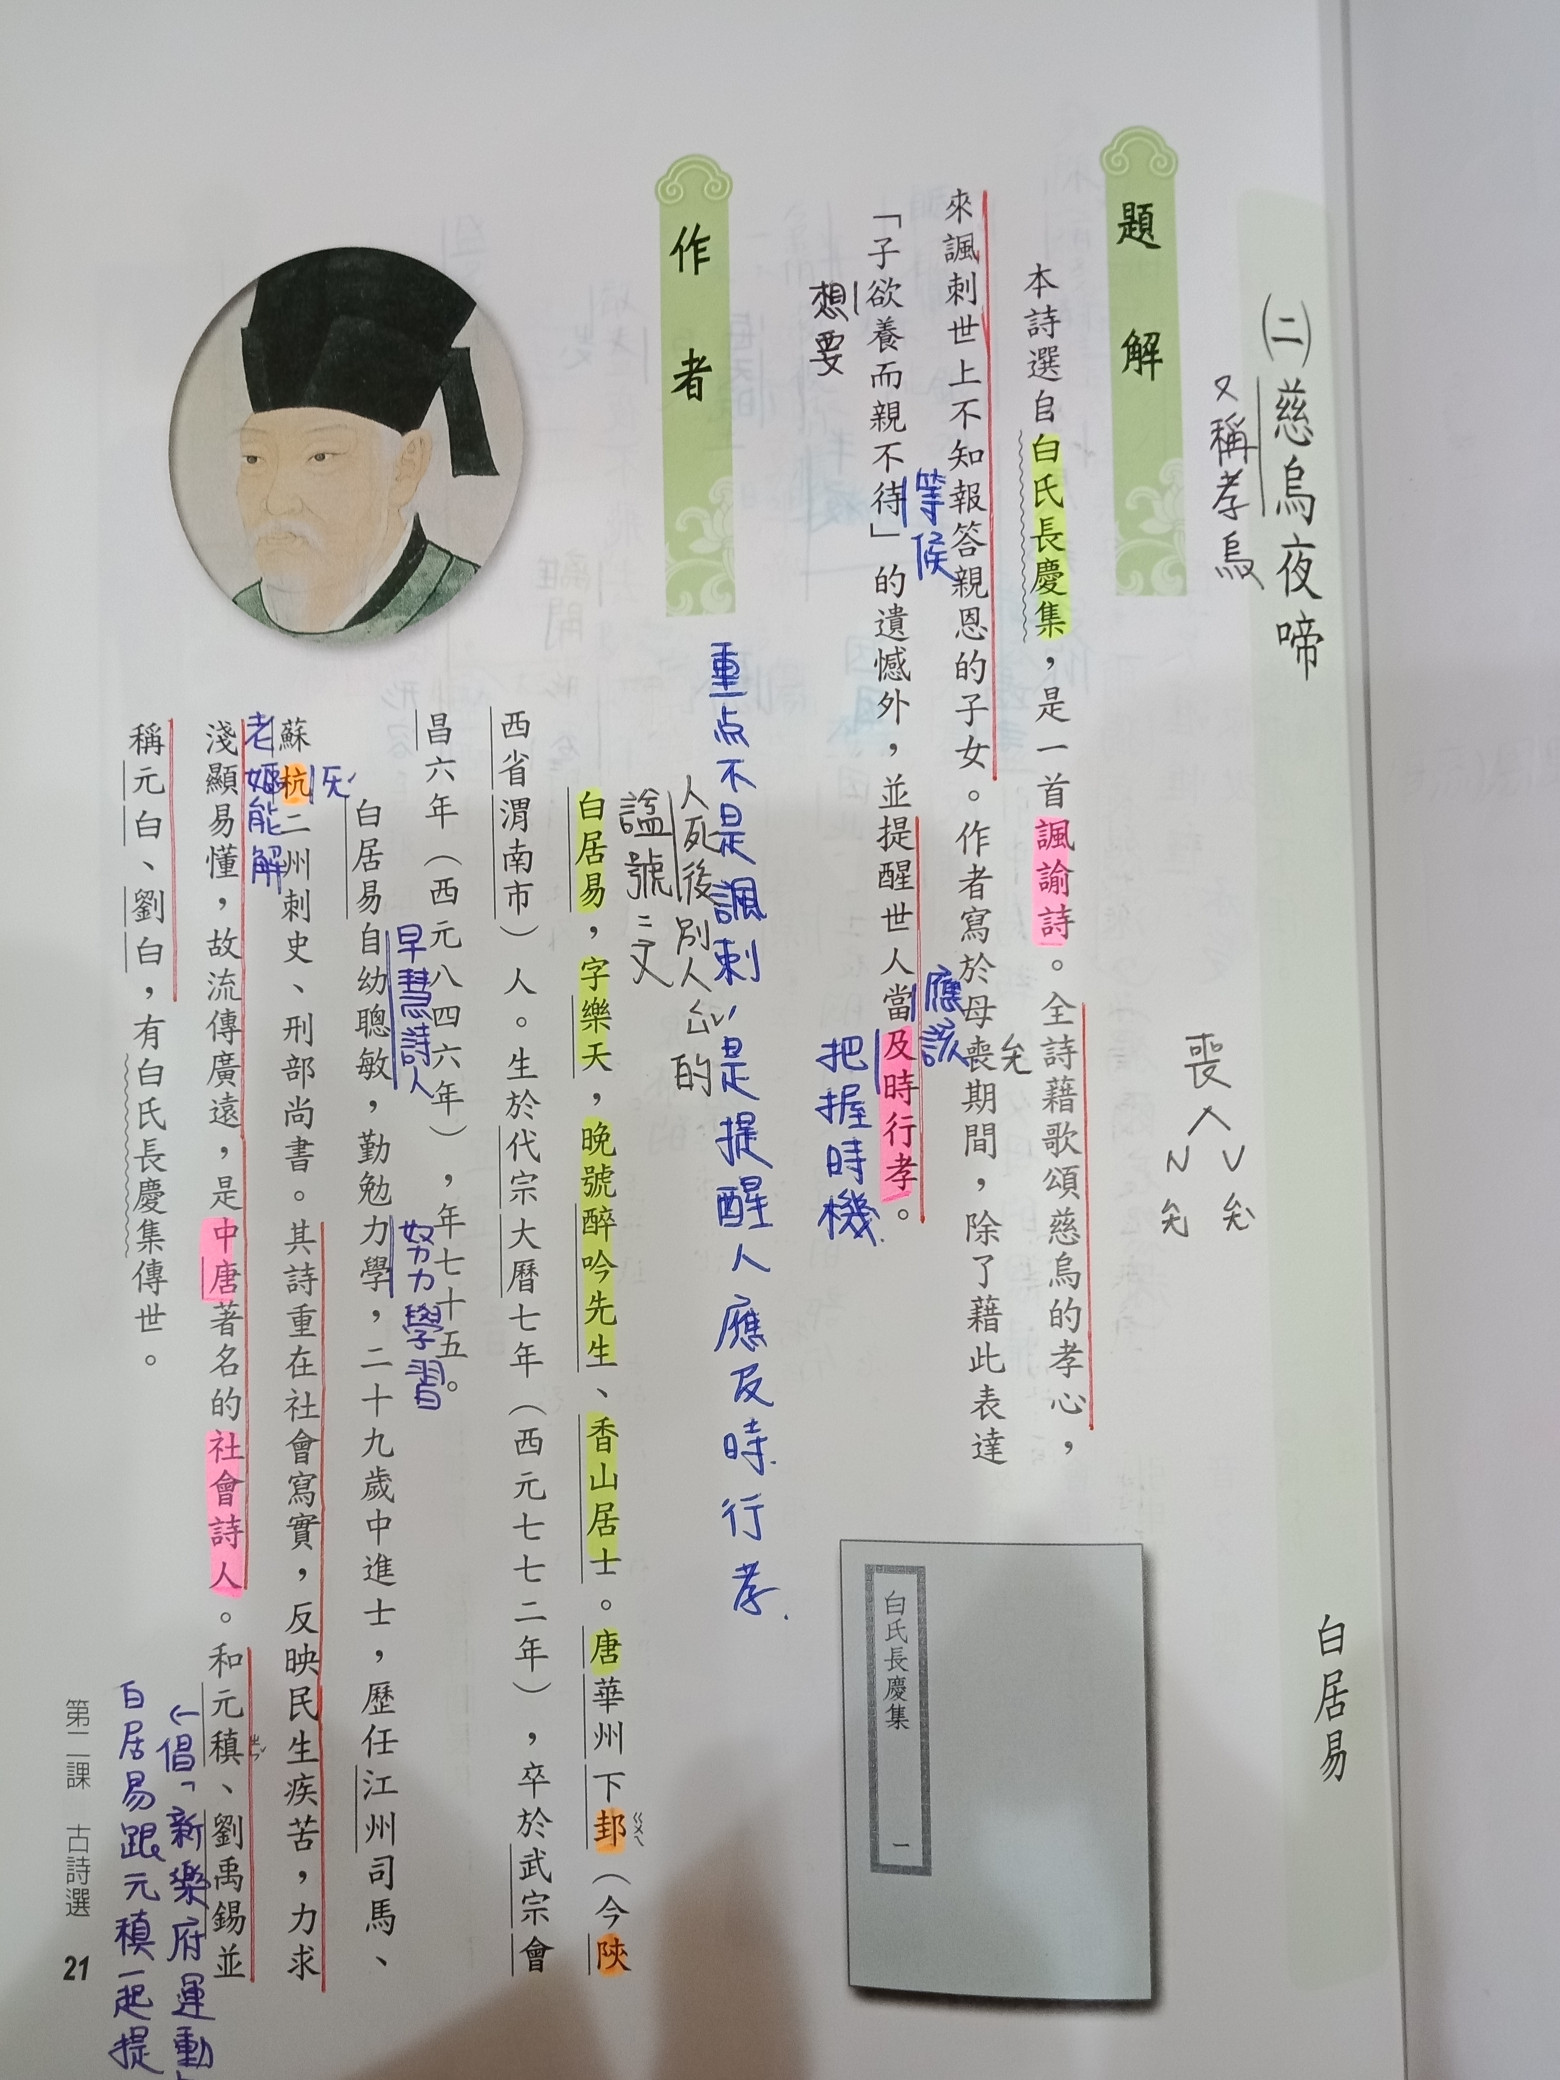 (二)慈烏夜啼
白居易
又稱孝烏
喪
V ㄤˋ
N ㄤ
題解
本詩選自白氏長慶集，是一首諷諭詩。全詩藉歌頌慈烏的孝心，
來諷刺世上不知報答親恩的子女。作者寫於母喪期間，除了藉此表達
ㄤ
等候
應該
「子欲養而親不待」的遺憾外，並提醒世人當及時行孝。
想要
把握時機
白氏長慶集 一
作者
重点不是諷刺，是提醒人應及時行孝.
人死後別人
的
諡號：文
白居易，字樂天，晚號醉吟先生、香山居士。唐華州下邽（今陝
ㄍㄨㄟ
西省渭南市）人。生於代宗大曆七年（西元七七二年），卒於武宗會
昌六年（西元八四六年），年七十五。
早慧詩人
努力學習
白居易自幼聰敏，勤勉力學，二十九歲中進士，歷任江州司馬、
蘇杭二州刺史、刑部尚書。其詩重在社會寫實，反映民生疾苦，力求
老嫗能解
淺顯易懂，故流傳廣遠，是中唐著名的社會詩人。和元稹、劉禹錫並
ㄓㄣˇ
稱元白、劉白，有白氏長慶集傳世。
白居易跟元稹一起提
倡「新樂府運動
第二課 古詩選 21